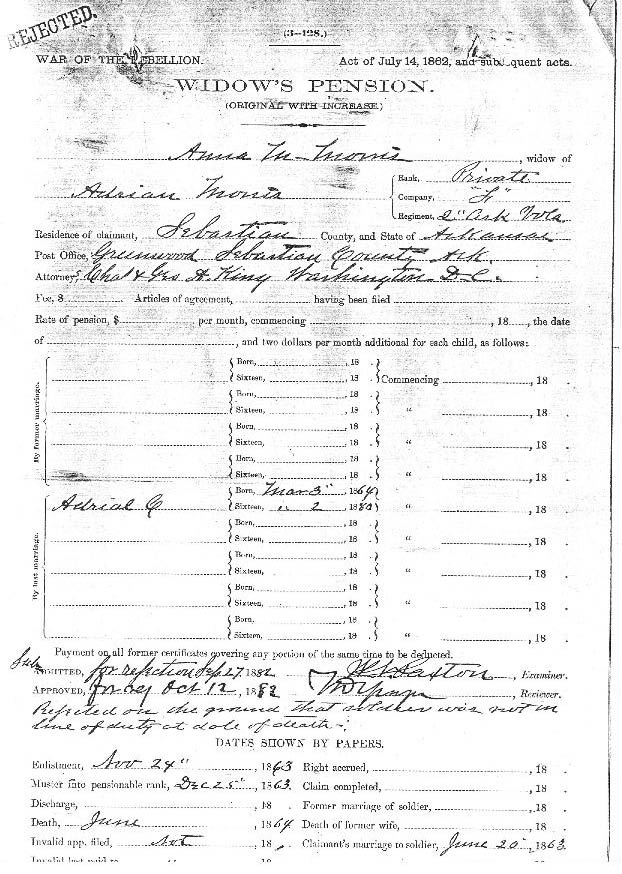 REJECTED.
(3-128.)
WAR OF THE REBELLION. Act of July 14, 1862, and subsequent acts.
WIDOW'S PENSION.
(ORIGINAL WITH INCREASE.)
Anna M Morris, widow of
Adrian Morris
Rank, Private
Company, "F"
Regiment, 2" Ark Vols
Residence of claimant, Sebastian County, and State of Arkansas
Post Office, Greenwood Sebastian County Ark.
Attorney, Chas & Geo. A. King Washington D.C.
Fee, $ Articles of agreement, having been filed
Rate of pension, $ per month, commencing , 18 , the date
of , and two dollars per month additional for each child, as follows:
By former marriage.
Born, , 18 .
Sixteen, , 18 . Commencing , 18 .
Born, , 18 .
Sixteen, , 18 . " , 18 .
Born, , 18 .
Sixteen, , 18 . " , 18 .
Born, , 18 .
Sixteen, , 18 . " , 18 .
By last marriage.
Born, Mar 3", 1864
Adrial C Sixteen, " 2, 1880 " , 18 .
Born, , 18 .
Sixteen, , 18 . " , 18 .
Born, , 18 .
Sixteen, , 18 . " , 18 .
Born, , 18 .
Sixteen, , 18 . " , 18 .
Born, , 18 .
Sixteen, , 18 . " , 18 .
Payment on all former certificates covering any portion of the same time to be deducted.
Sub ADMITTED, for rejection Sep 27, 1882 , Examiner.
APPROVED, for rej Oct 12, 1882 , Reviewer.
Rejected on the ground that soldier was not in
line of duty at date of death.
DATES SHOWN BY PAPERS.
Enlistment, Nov 24", 1863 Right accrued, , 18 .
Muster into pensionable rank, Dec 25", 1863. Claim completed, , 18 .
Discharge, , 18 . Former marriage of soldier, , 18 .
Death, June, 1864 Death of former wife, , 18 .
Invalid app. filed, Not, 18 . Claimant's marriage to soldier, June 20, 1863.
Invalid last paid to , 18